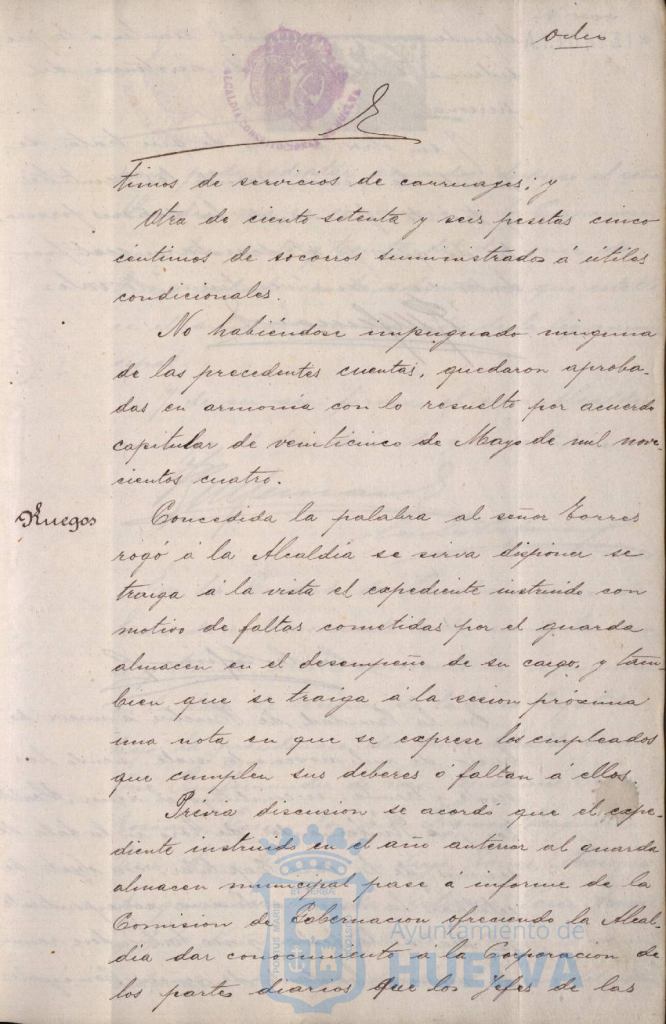 ocho
ALCALDIA CONSTITUCIONAL HUELVA
timos de servicios de carruages; y
Otra de ciento setenta y seis pesetas cinco
centimos de socorros suministrados á útiles
condicionales.
No habiéndose impugnado ninguna
de las precedentes cuentas, quedaron aproba-
das en armonia con lo resuelto por acuerdo
capitular de veinticinco de Mayo de mil nove-
cientos cuatro.
Ruegos
Concedida la palabra al señor Torres
rogó á la Alcaldia se sirva disponer se
traiga á la vista el expediente instruido con
motivo de faltas cometidas por el guarda
almacen en el desempeño de su cargo, y tam-
bien que se traiga á la sesion próxima
una nota en que se exprese los empleados
que cumplen sus deberes ó faltan á ellos.
Prévia discusion se acordó que el expe-
diente instruido en el año anterior al guarda
almacen municipal pase á informe de la
Comision de Gobernacion ofreciendo la Alcal-
dia dar conocimiento á la Corporacion de
los partes diarios que los Jefes de las
Ayuntamiento de
HUELVA